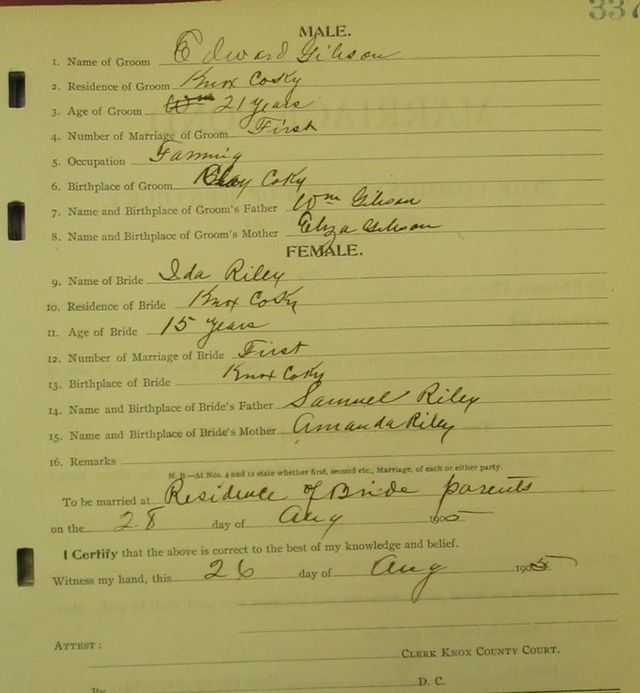 337
MALE.
1. Name of Groom Edward Gibson
2. Residence of Groom Knox CoKy
3. Age of Groom 21 years
4. Number of Marriage of Groom First
5. Occupation Farming
6. Birthplace of Groom Clay CoKy
7. Name and Birthplace of Groom's Father Wm Gibson
8. Name and Birthplace of Groom's Mother Eliza Gibson
FEMALE.
9. Name of Bride Ida Riley
10. Residence of Bride Knox CoKy
11. Age of Bride 15 years
12. Number of Marriage of Bride First
13. Birthplace of Bride Knox CoKy
14. Name and Birthplace of Bride's Father Samuel Riley
15. Name and Birthplace of Bride's Mother Amanda Riley
16. Remarks
N. B.—At Nos. 4 and 12 state whether first, second etc., Marriage, of each or either party.
To be married at Residence of Bride parents
on the 28 day of Aug 1905
I Certify that the above is correct to the best of my knowledge and belief.
Witness my hand, this 26 day of Aug 1905
ATTEST:
CLERK KNOX COUNTY COURT.
By D. C.